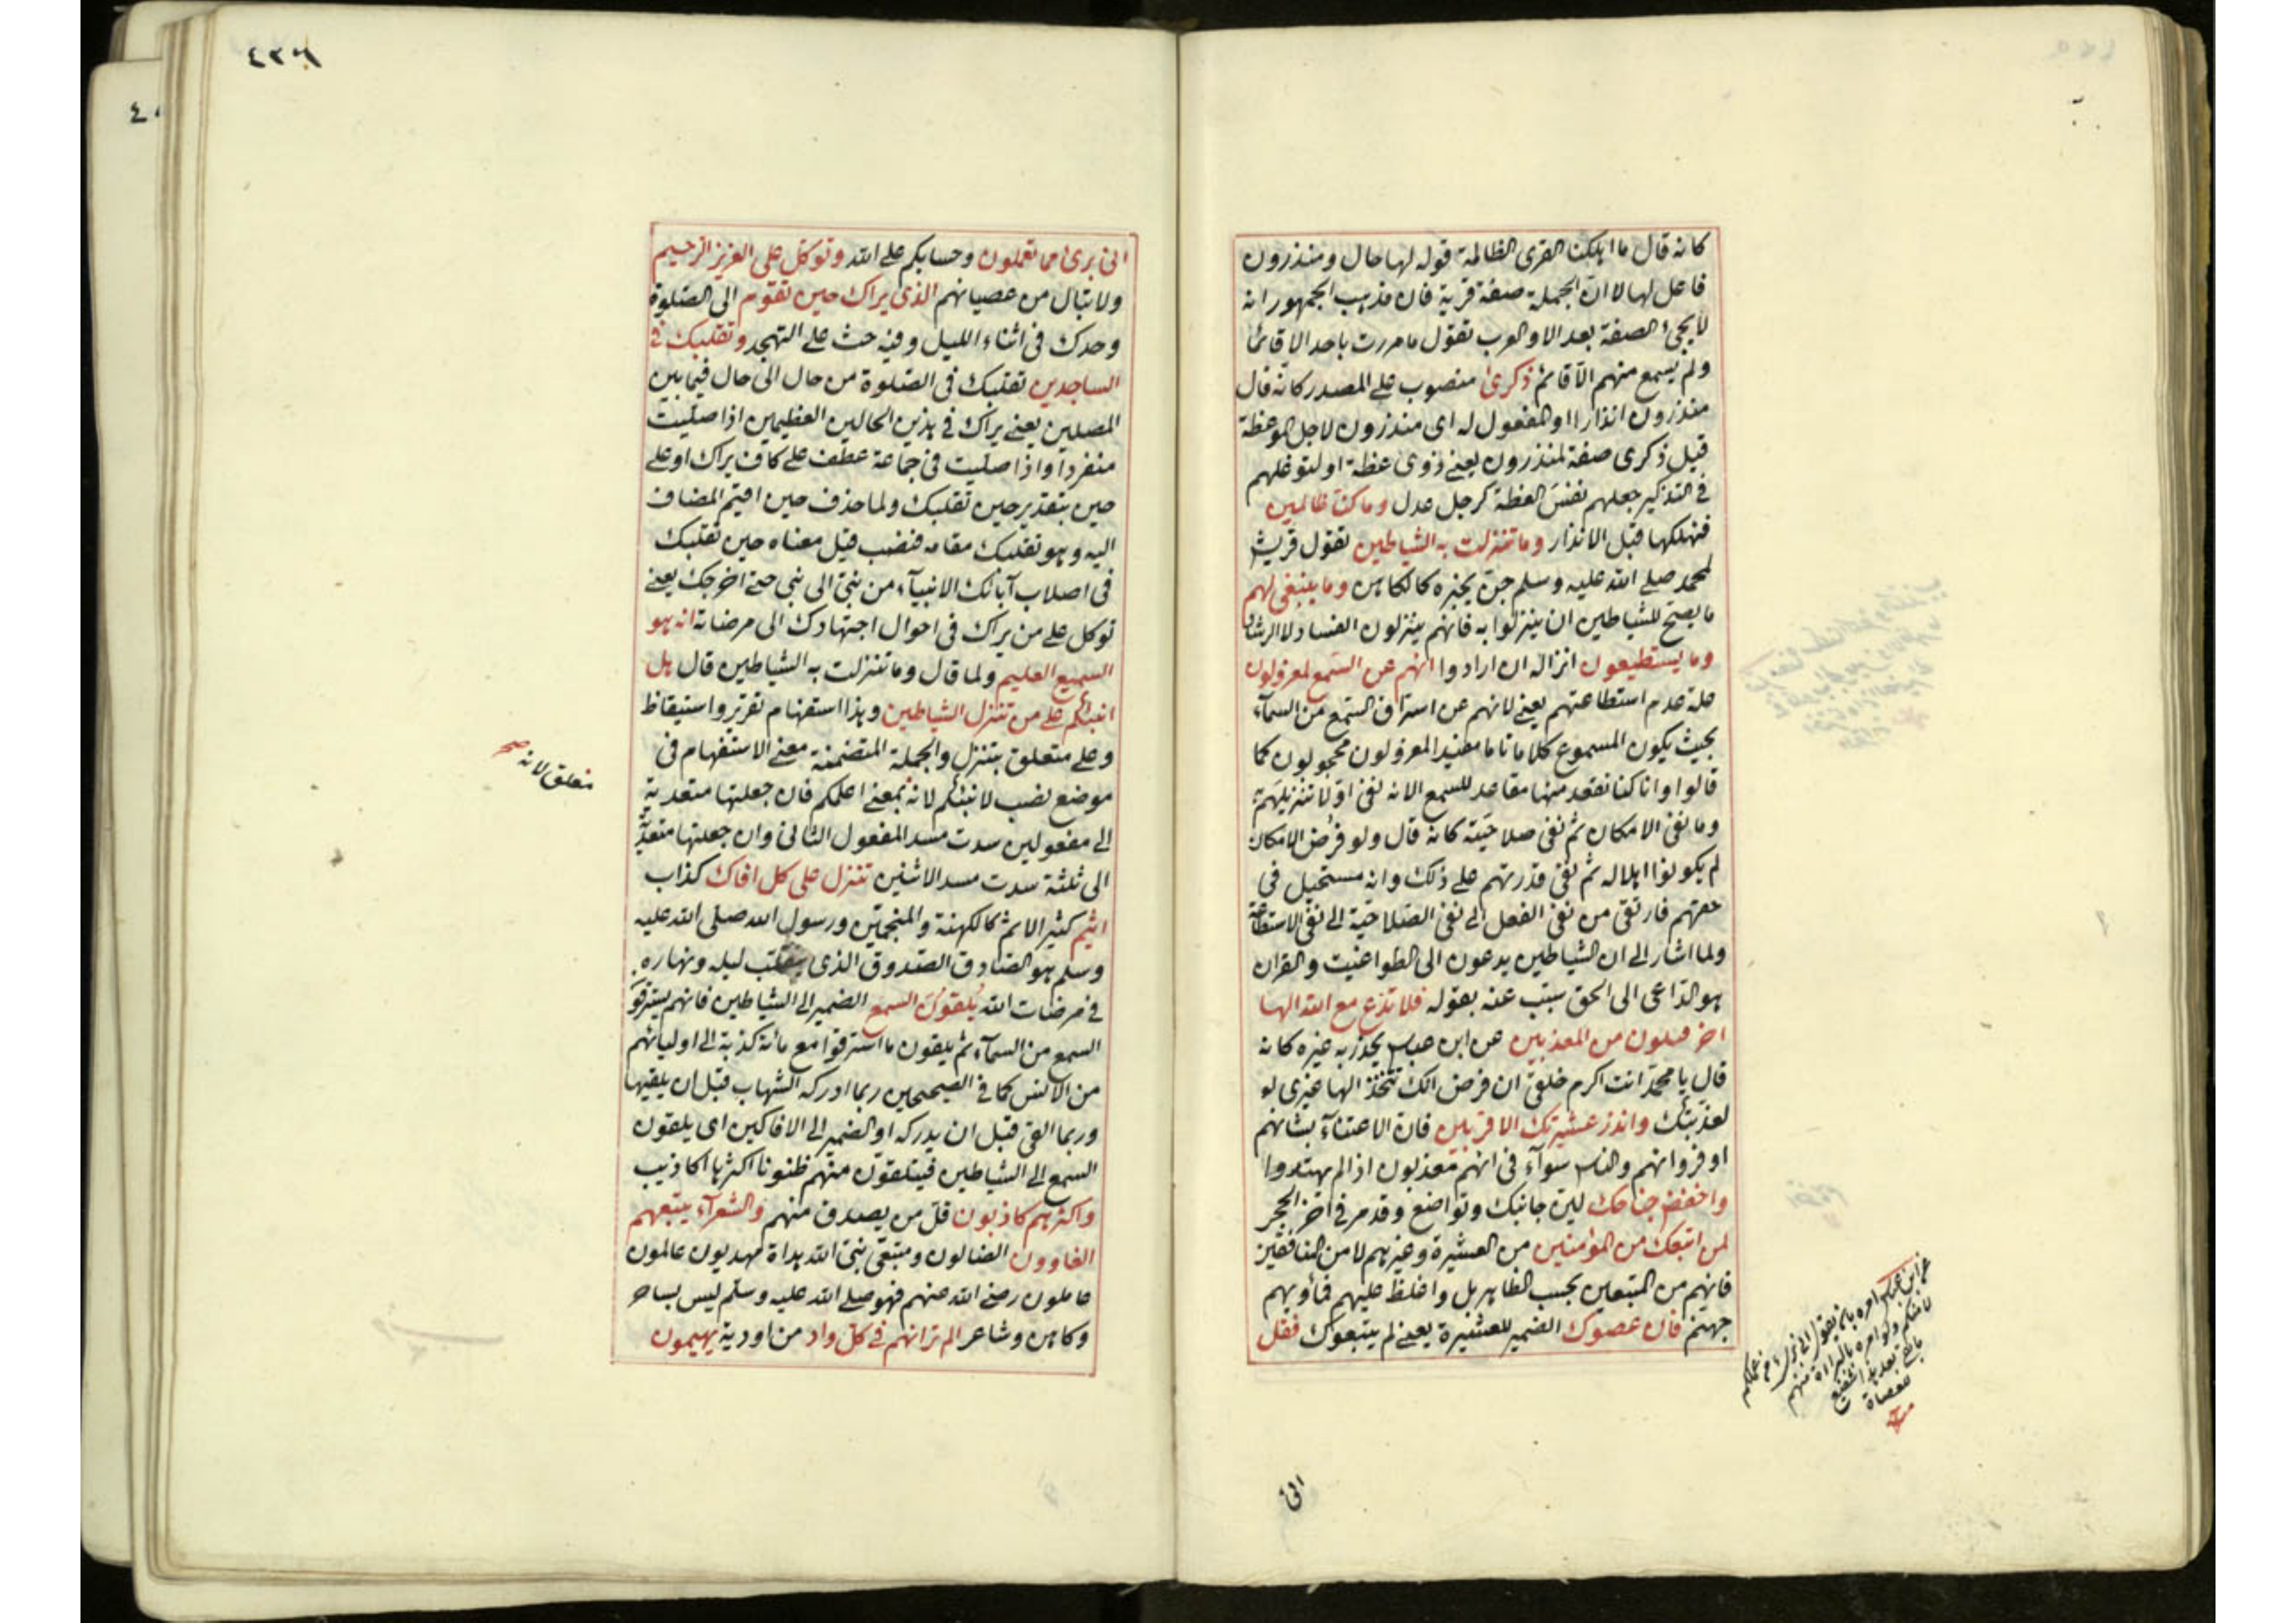 كانه قال ما اهلكنا القرى الظالمة قوله لها حال ومنذرون
فاعل لها لا ان الجملة صفة قرية فان مذهب الجمهور انه
لا يجئ الصفة بعد الا والعرب تقول ما مررت باحد الا قائما
ولم يسمع منهم الا قائم ذكرى منصوب على المصدر كانه قال
منذرون انذارا او المفعول له اى منذرون لاجل الموعظة
قيل ذكرى صفة لمنذرون يعنى ذوى عظة او لتوغلهم
فى التذكير جعلهم نفس العظة كرجل عدل وما كنا ظالمين
فنهلكها قبل الانذار وما تنزلت به الشياطين تقول قريش
لمحمد صلى الله عليه وسلم جن يخبره كالكاهن وما ينبغى لهم
ما يصح للشياطين ان ينزلوا به فانهم ينزلون الفساد لا الرشاد
وما يستطيعون انزاله ان ارادوا انهم عن السمع لمعزولون
علة عدم استطاعتهم يعنى لانهم عن استراق السمع من السمآء
بحيث يكون المسموع كلاما تاما مفيدا لمعزولون محجوبون كما
قالوا وانا كنا نقعد منها مقاعد للسمع الا انه نفى اولا تنزيلهم
وما نفى الامكان ثم نفى صلاحيته كانه قال ولو فرض الامكان
لم يكونوا اهلا له ثم نفى قدرتهم على ذلك وانه مستحيل فى
حقهم فارتقى من نفى الفعل الى نفى الصلاحية الى نفى الاستطاعة
ولما اشار الى ان الشياطين يدعون الى الطواغيت والقران
هو الداعى الى الحق سبب عنه بقوله فلا تدع مع الله الها
اخر فتكون من المعذبين عن ابن عباس يحذر به غيره كانه
قال يا محمد انت اكرم خلقى ان فرض انك تتخذ الها غيرى لو
لعذبتك وانذر عشيرتك الاقربين فان الاعتنآء بشانهم
اوفر وانهم والناس سوآء فى انهم معذبون اذا لم يهتدوا
واخفض جناحك لين جانبك وتواضع وقد مر فى آخر الحجر
لمن اتبعك من المؤمنين من العشيرة وغيرهم لا من المنافقين
فانهم من المتبعين بحسب الظاهر بل واغلظ عليهم فماويهم
جهنم فان عصوك الضمير للعشيرة يعنى لم يتبعوك فقل
عن ابن عباس امره بان يقول
منهم
للعصاة
منه
انى
٤٣٦
انى برئ مما تعملون وحسابكم على الله وتوكل على العزيز الرحيم
ولا تبال من عصيانهم الذى يراك حين تقوم الى الصلوة
وحدك فى اثناء الليل وفيه حث على التهجد وتقلبك فى
الساجدين تقلبك فى الصلوة من حال الى حال فيما بين
المصلين يعنى يراك فى هذين الحالين العظيمين اذا صليت
منفردا واذا صليت فى جماعة عطف على كاف يراك او على
حين بتقدير حين تقلبك ولما حذف حين اقيم المضاف
اليه وهو تقلبك مقامه فنصب قيل معناه حين تقلبك
فى اصلاب آبائك الانبيآء من نبى الى نبى حتى اخرجك يعنى
توكل على من يراك فى احوال اجتهادك الى مرضاته انه هو
السميع العليم ولما قال وما تنزلت به الشياطين قال هل
انبئكم على من تنزل الشياطين وهذا استفهام تقرير واستيقاظ
وعلى متعلق بتنزل والجملة المتضمنة معنى الاستفهام فى
موضع نصب لانبئكم لانه بمعنى اعلمكم فان جعلتها متعدية
الى مفعولين سدت مسد المفعول الثانى وان جعلتها متعدية
الى ثلثة سدت مسد الاثنين تنزل على كل افاك كذاب
اثيم كثير الاثم كالكهنة والمنجمين ورسول الله صلى الله عليه
وسلم هو الصادق الصدوق الذى يتقلب ليله ونهاره
فى مرضات الله يلقون السمع الضمير الى الشياطين فانهم يسترقو
السمع من السمآء ثم يلقون ما استرقوا مع مائة كذبة الى اوليائهم
من الانس كما فى الصحيحين ربما ادركه الشهاب قبل ان يلقيها
وربما القى قبل ان يدركه او الضمير الى الافاكين اى يلقون
السمع الى الشياطين فيتلقون منهم ظنونا اكثرها اكاذيب
واكثرهم كاذبون قل من يصدق منهم والشعرآء يتبعهم
الغاوون الضالون ومتبعى نبى الله هداة مهديون عالمون
عاملون رضى الله عنهم فهو صلى الله عليه وسلم ليس بساحر
وكاهن وشاعر الم تر انهم فى كل واد من اودية يهيمون
متعلق لانه صح